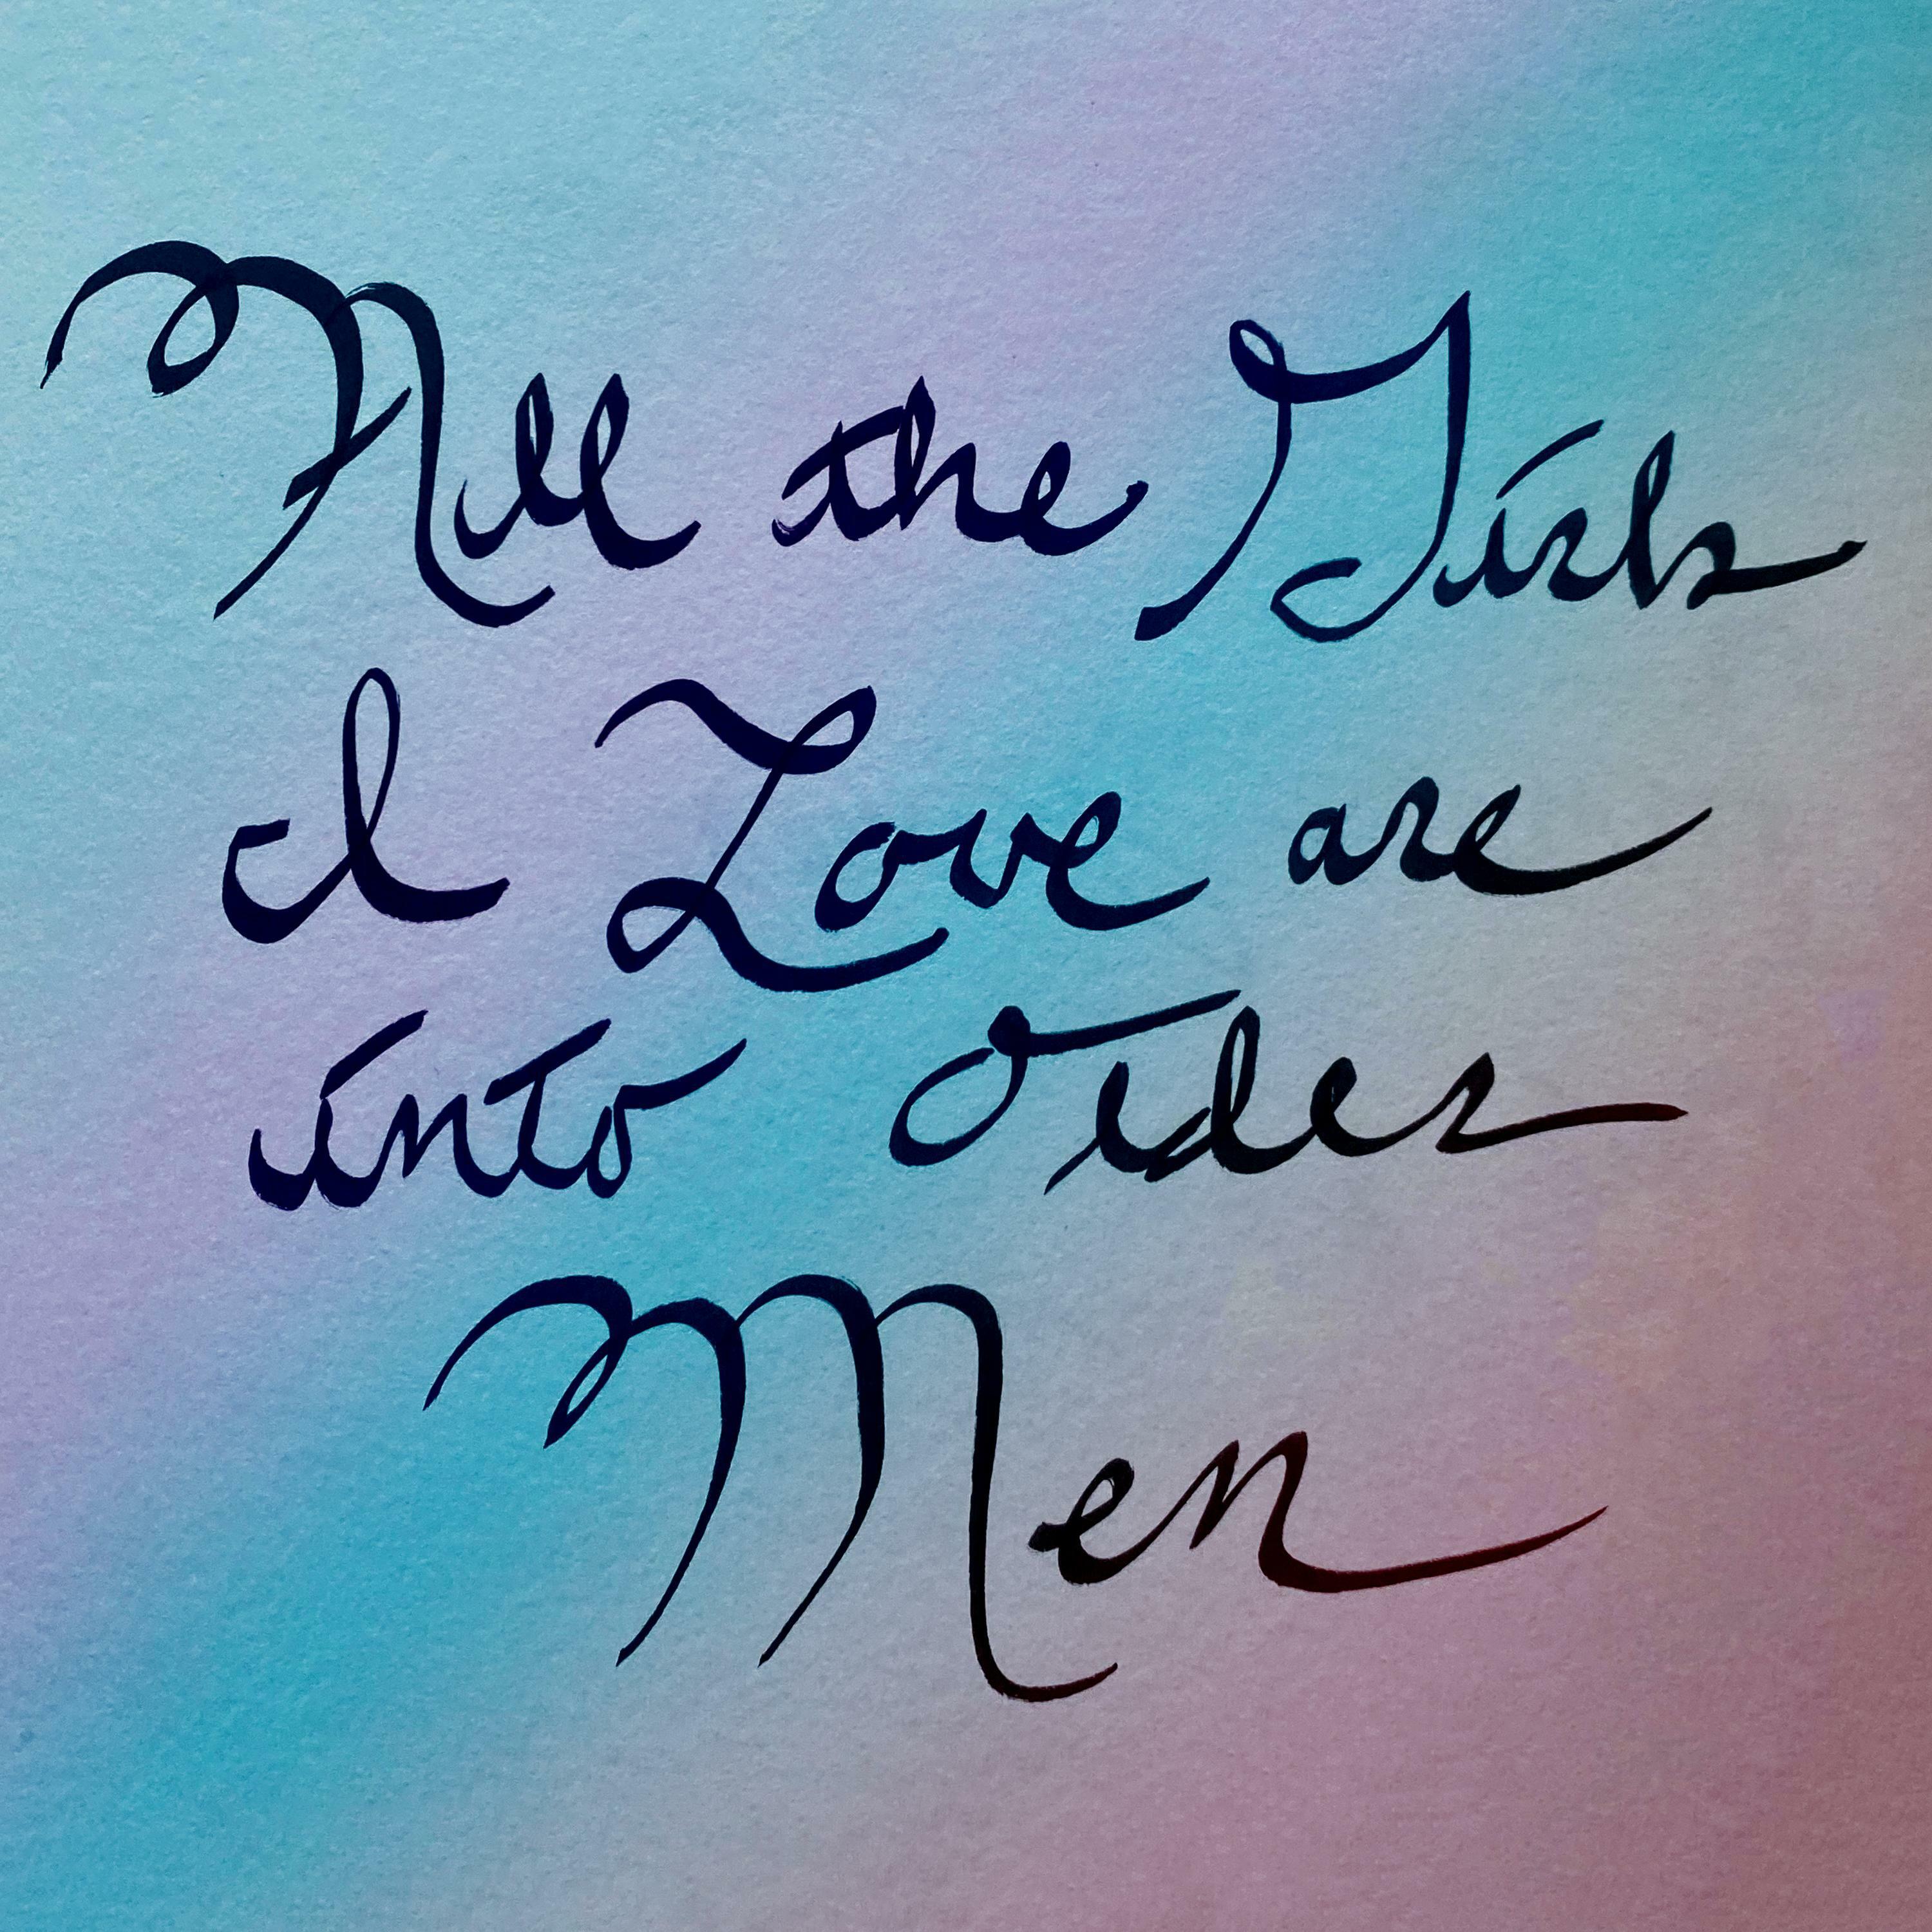 All the Girls
I Love are
into Older
Men